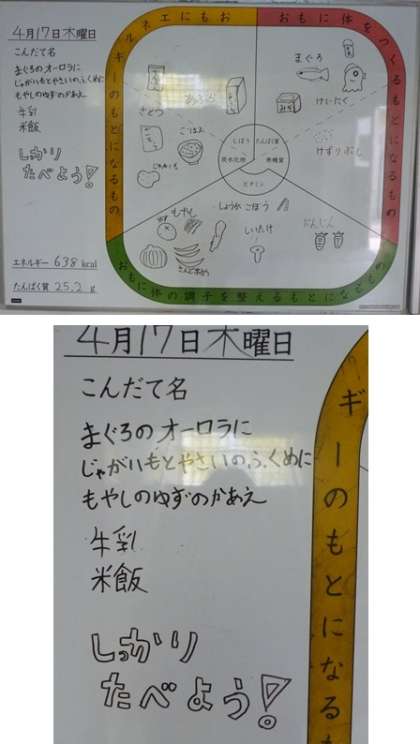 4月17日木曜日
こんだて名
まぐろのオーロラに
じゃがいもとやさいのふくめに
もやしのゆずのかあえ
牛乳
米飯
しっかり
たべよう!
エネルギー 638 kcal
たんぱく質 25.2 g
おもにエネルギーのもとになるもの
おもに体をつくるもとになるもの
おもに体の調子を整えるもとになるもの
さとう
あぶら
ごはん
じゃがいも
まぐろ
みそ
けずりぶし
しぼう
たんぱく質
炭水化物
無機質
ビタミン
もやし
しょうが
ごぼう
しいたけ
にんじん
4月17日木曜日
こんだて名
まぐろのオーロラに
じゃがいもとやさいのふくめに
もやしのゆずのかあえ
牛乳
米飯
しっかり
たべよう!
ギーのもとになるも